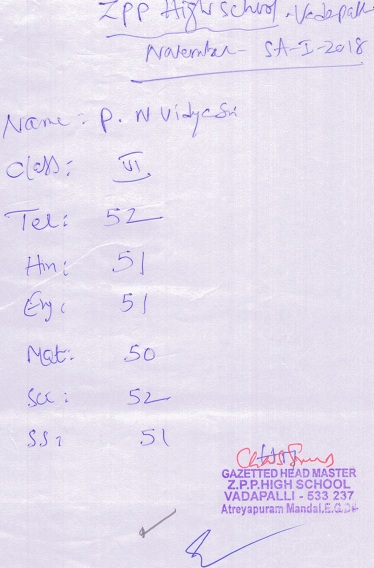 ZPP High school, Vadapalli
November - SA-I-2018
Name: P. N Vidya Sri
Class: VI
Tel: 52
Hin: 51
Eng: 51
Mat: 50
Sci: 52
SS: 51
GAZETTED HEAD MASTER
Z.P.P.HIGH SCHOOL
VADAPALLI - 533 237
Atreyapuram Mandal,E.G.Dt